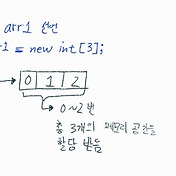 arr1 선언
r1 = new int[3];
0 1 2
0~2 번
총 3개의 메모리 공간을
할당 받음